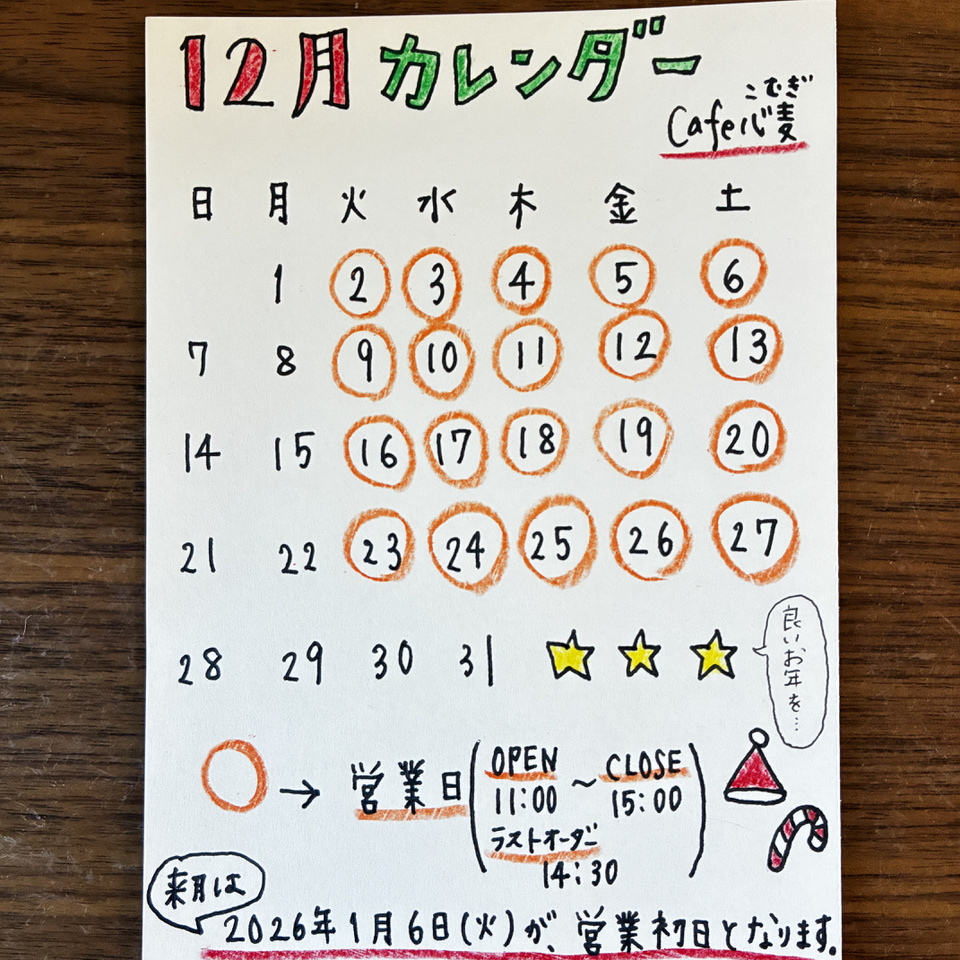 12月カレンダー
こむぎ
Cafe心麦
日 月 火 水 木 金 土
1 2 3 4 5 6
7 8 9 10 11 12 13
14 15 16 17 18 19 20
21 22 23 24 25 26 27
28 29 30 31
良いお年を…
→ 営業日 (OPEN 11:00 ~ CLOSE 15:00
ラストオーダー
14:30)
来月は
2026年1月6日(火)が、営業初日となります。